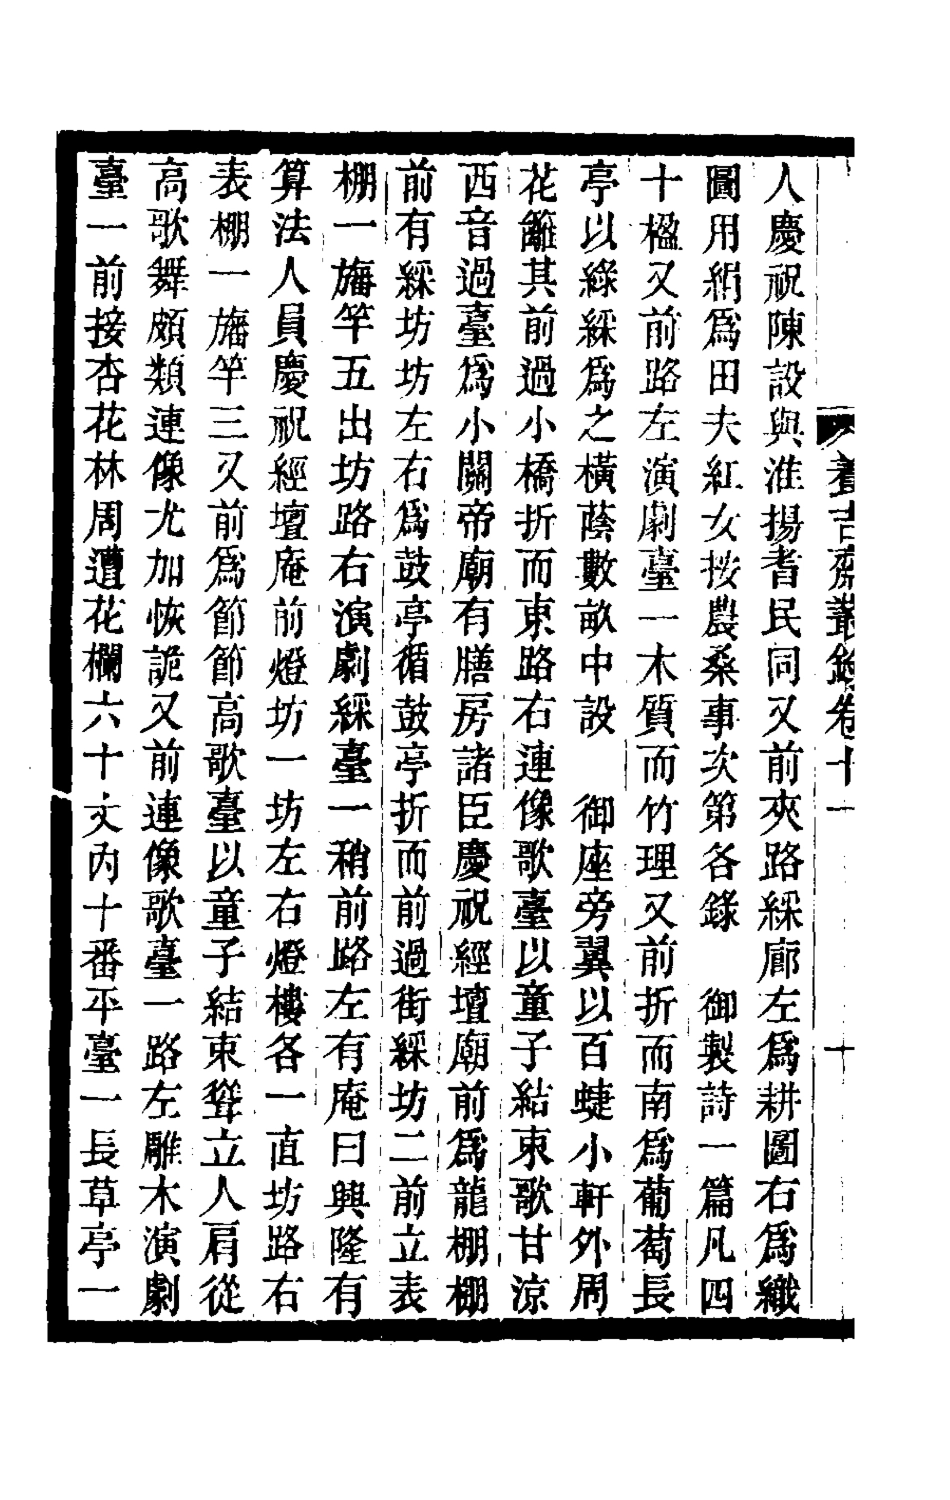 養吉齋叢錄卷十一
十
人慶祝陳設與淮揚耆民同又前夾路綵廊左爲耕圖右爲織
圖用絹爲田夫紅女按農桑事次第各錄　御製詩一篇凡四
十楹又前路左演劇臺一木質而竹理又前折而南爲葡萄長
亭以綠綵爲之橫蔭數畝中設　御座旁翼以百蜨小軒外周
花籬其前過小橋折而東路右連像歌臺以童子結束歌甘涼
西音過臺爲小關帝廟有膳房諸臣慶祝經壇廟前爲龍棚棚
前有綵坊坊左右爲鼓亭循鼓亭折而前過街綵坊二前立表
棚一旛竿五出坊路右演劇綵臺一稍前路左有庵曰興隆有
算法人員慶祝經壇庵前燈坊一坊左右燈樓各一直坊路右
表棚一旛竿三又前爲節節高歌臺以童子結束聳立人肩從
高歌舞頗類連像尤加恢詭又前連像歌臺一路左雕木演劇
臺一前接杏花林周遭花欄六十丈內十番平臺一長草亭一